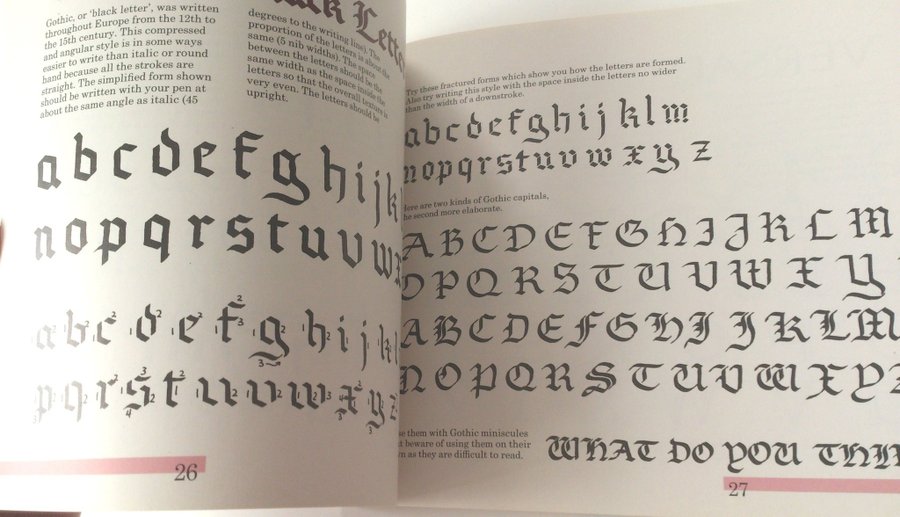 Gothic, or 'black letter', was written
throughout Europe from the 12th to
the 15th century. This compressed
and angular style is in some ways
easier to write than italic or round
hand because all the strokes are
straight. The simplified form shown
should be written with your pen at
about the same angle as italic (45
degrees to the writing line). The
proportion of the letters is about the
same (5 nib widths). The space
between the letters should be the
same width as the space inside the
letters so that the overall texture is
very even. The letters should be
upright.
a b c d e f g h i j k
n o p q r s t u v w x
a b c d e f g h i j k l
p q r s t u v w x y z
26
Try these fractured forms which show you how the letters are formed.
Also try writing this style with the space inside the letters no wider
than the width of a downstroke.
a b c d e f g h i j k l m
n o p q r s t u v w x y z
Here are two kinds of Gothic capitals,
the second more elaborate.
A B C D E F G H I J K L M
O P Q R S T U V W X Y
A B C D E F G H I J K L M
N O P Q R S T U V W X Y Z
them with Gothic miniscules
beware of using them on their
as they are difficult to read.
WHAT DO YOU
27